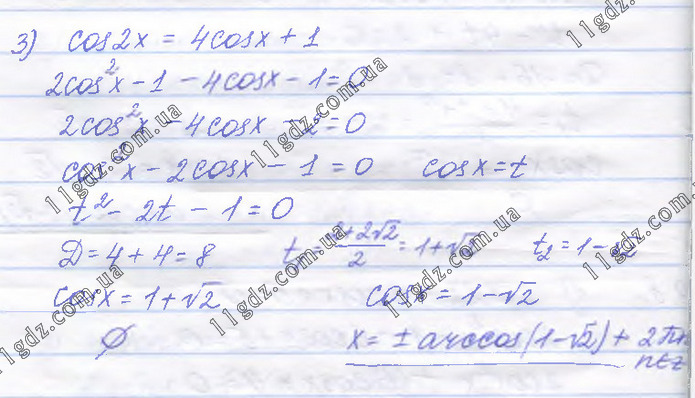 3) cos2x = 4cosx + 1
2cos²x - 1 - 4cosx - 1 = 0
2cos²x - 4cosx - 2 = 0
cos²x - 2cosx - 1 = 0 cosx = t
t² - 2t - 1 = 0
D = 4 + 4 = 8 t₁ = (2+2√2)/2 = 1+√2 t₂ = 1-√2
cosx = 1+√2 cosx = 1-√2
∅ x = ± arccos(1-√2) + 2πn
n∈z
11gdz.com.ua
11gdz.com.ua
11gdz.com.ua
11gdz.com.ua
11gdz.com.ua
11gdz.com.ua